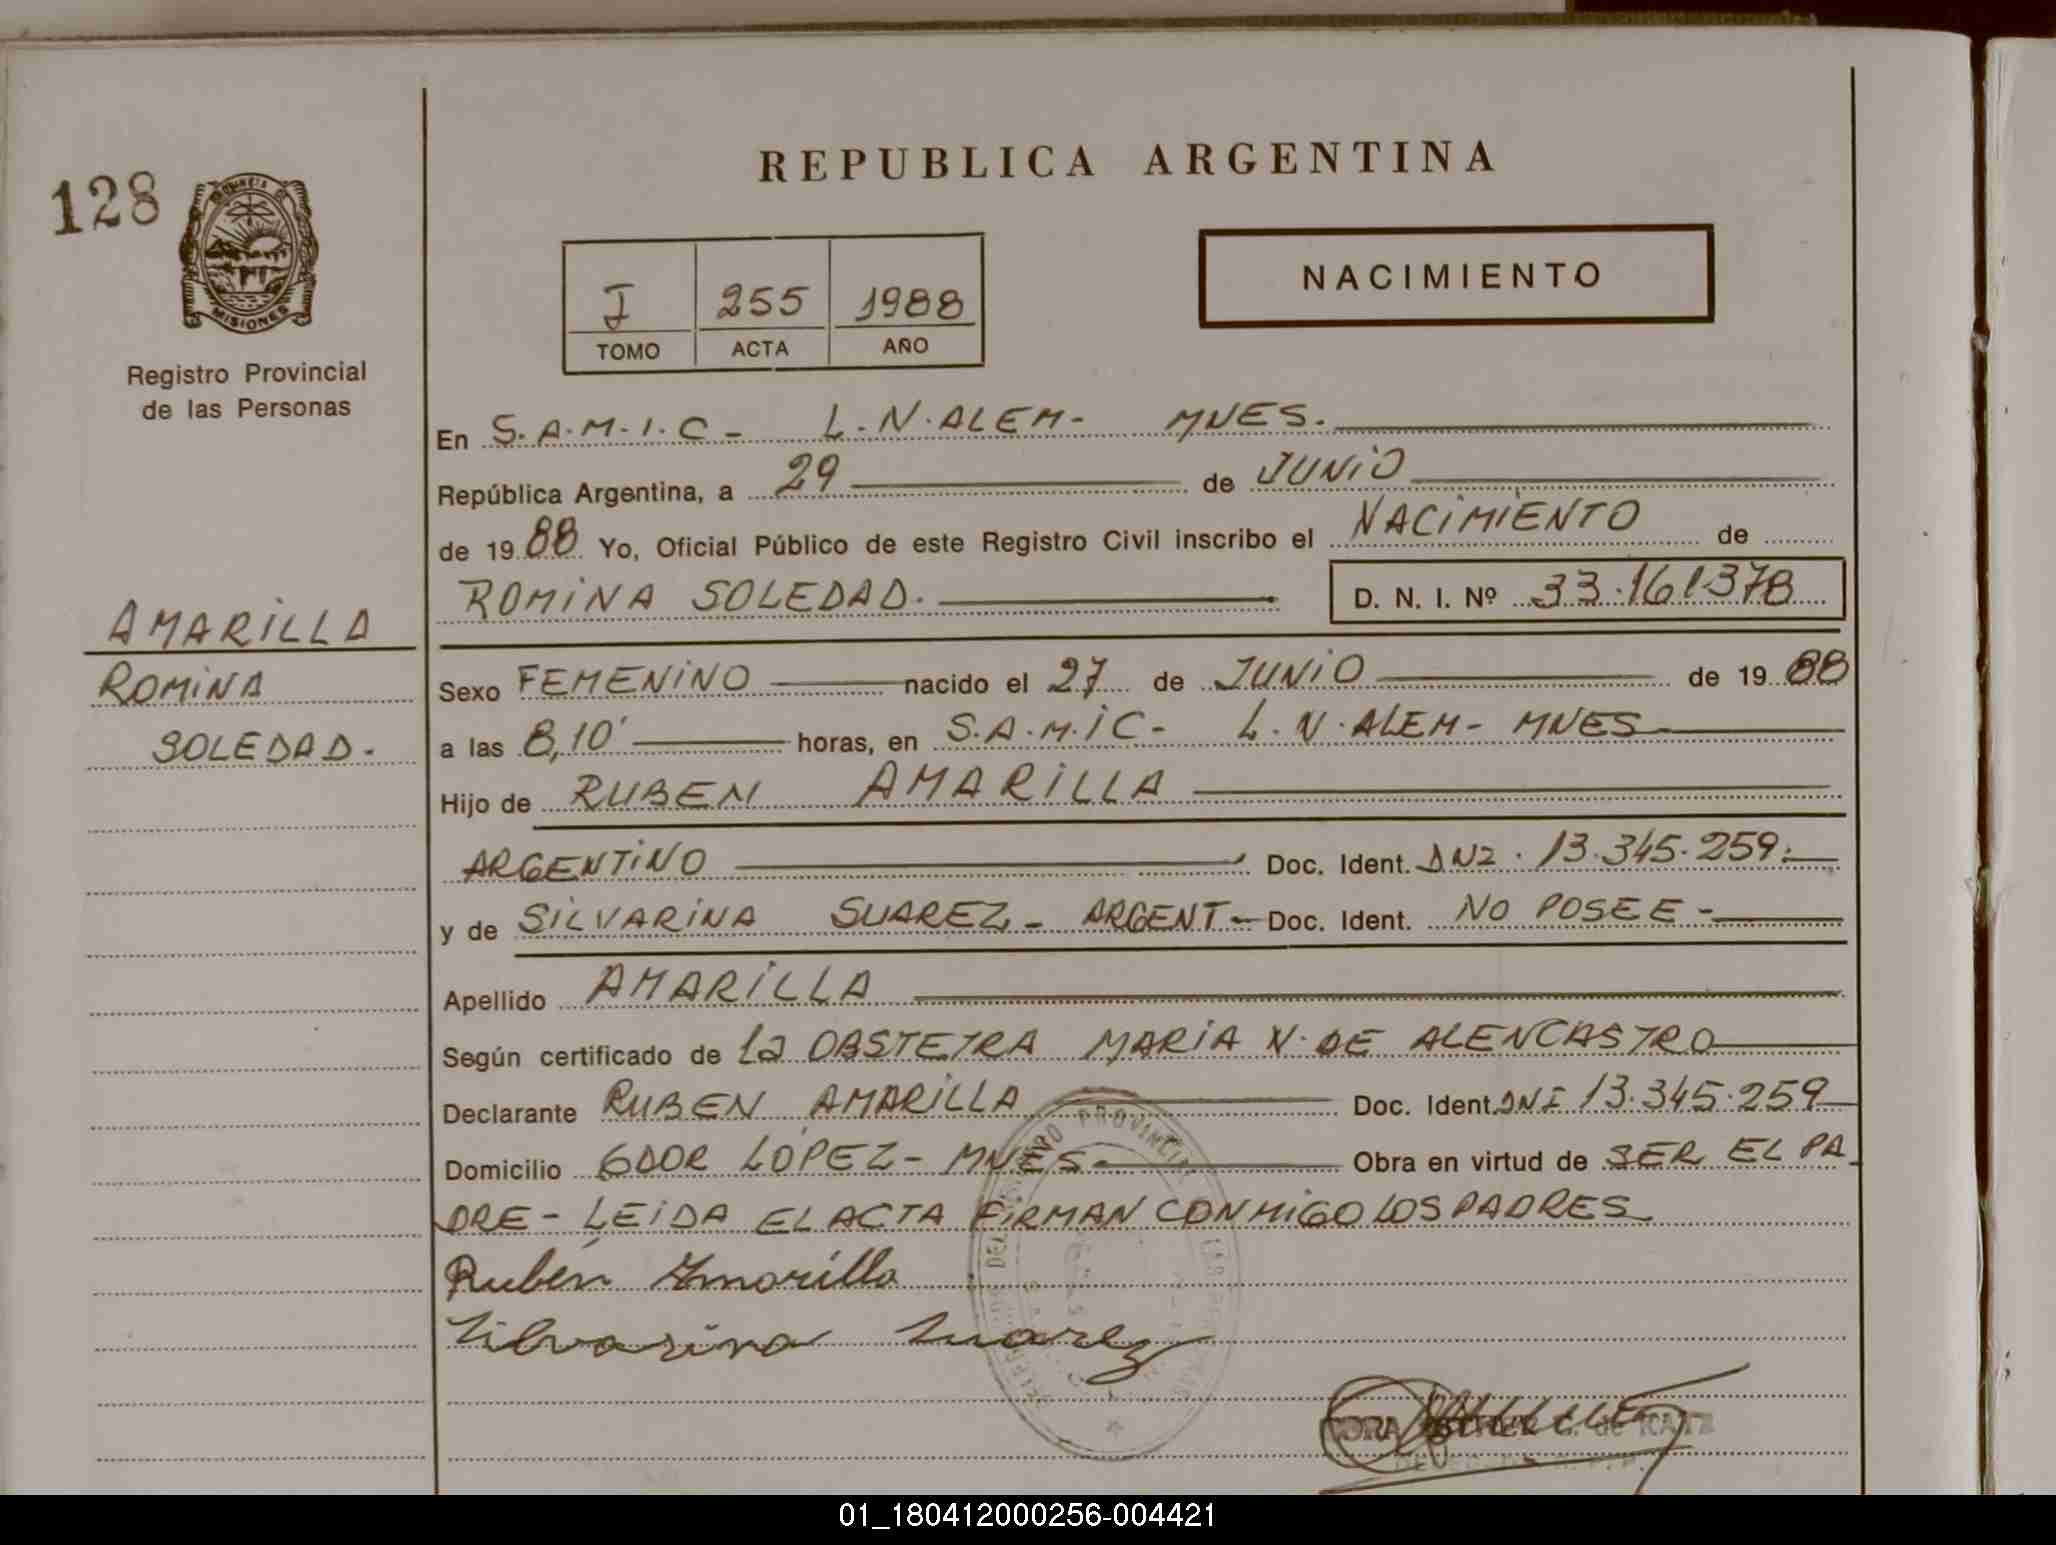 REPUBLICA ARGENTINA
128
PROVINCIA DE
MISIONES
Registro Provincial
de las Personas
I 255 1988
TOMO ACTA AÑO
NACIMIENTO
En S.A.M.I.C- L.N.ALEM- MNES.
República Argentina, a 29 de JUNIO
de 1988 Yo, Oficial Público de este Registro Civil inscribo el NACIMIENTO de
ROMINA SOLEDAD. D. N. I. Nº 33.161378
AMARILLA
ROMINA
SOLEDAD.
Sexo FEMENINO nacido el 27 de JUNIO de 1988
a las 8,10' horas, en S.A.M.IC- L.N.ALEM- MNES
Hijo de RUBEN AMARILLA
ARGENTINO Doc. Ident. DNI. 13.345.259.
y de SILVARINA SUAREZ- ARGENT- Doc. Ident. NO POSEE-
Apellido AMARILLA
Según certificado de la OBSTETRA MARIA N. DE ALENCASTRO
Declarante RUBEN AMARILLA Doc. Ident. DNI 13.345.259
Domicilio GDOR LOPEZ- MNES- Obra en virtud de SER EL PA-
DRE- LEIDA EL ACTA FIRMAN CONMIGO LOS PADRES
Rubén Amarilla
Silvarina Suarez
de KATZ
01_180412000256-004421